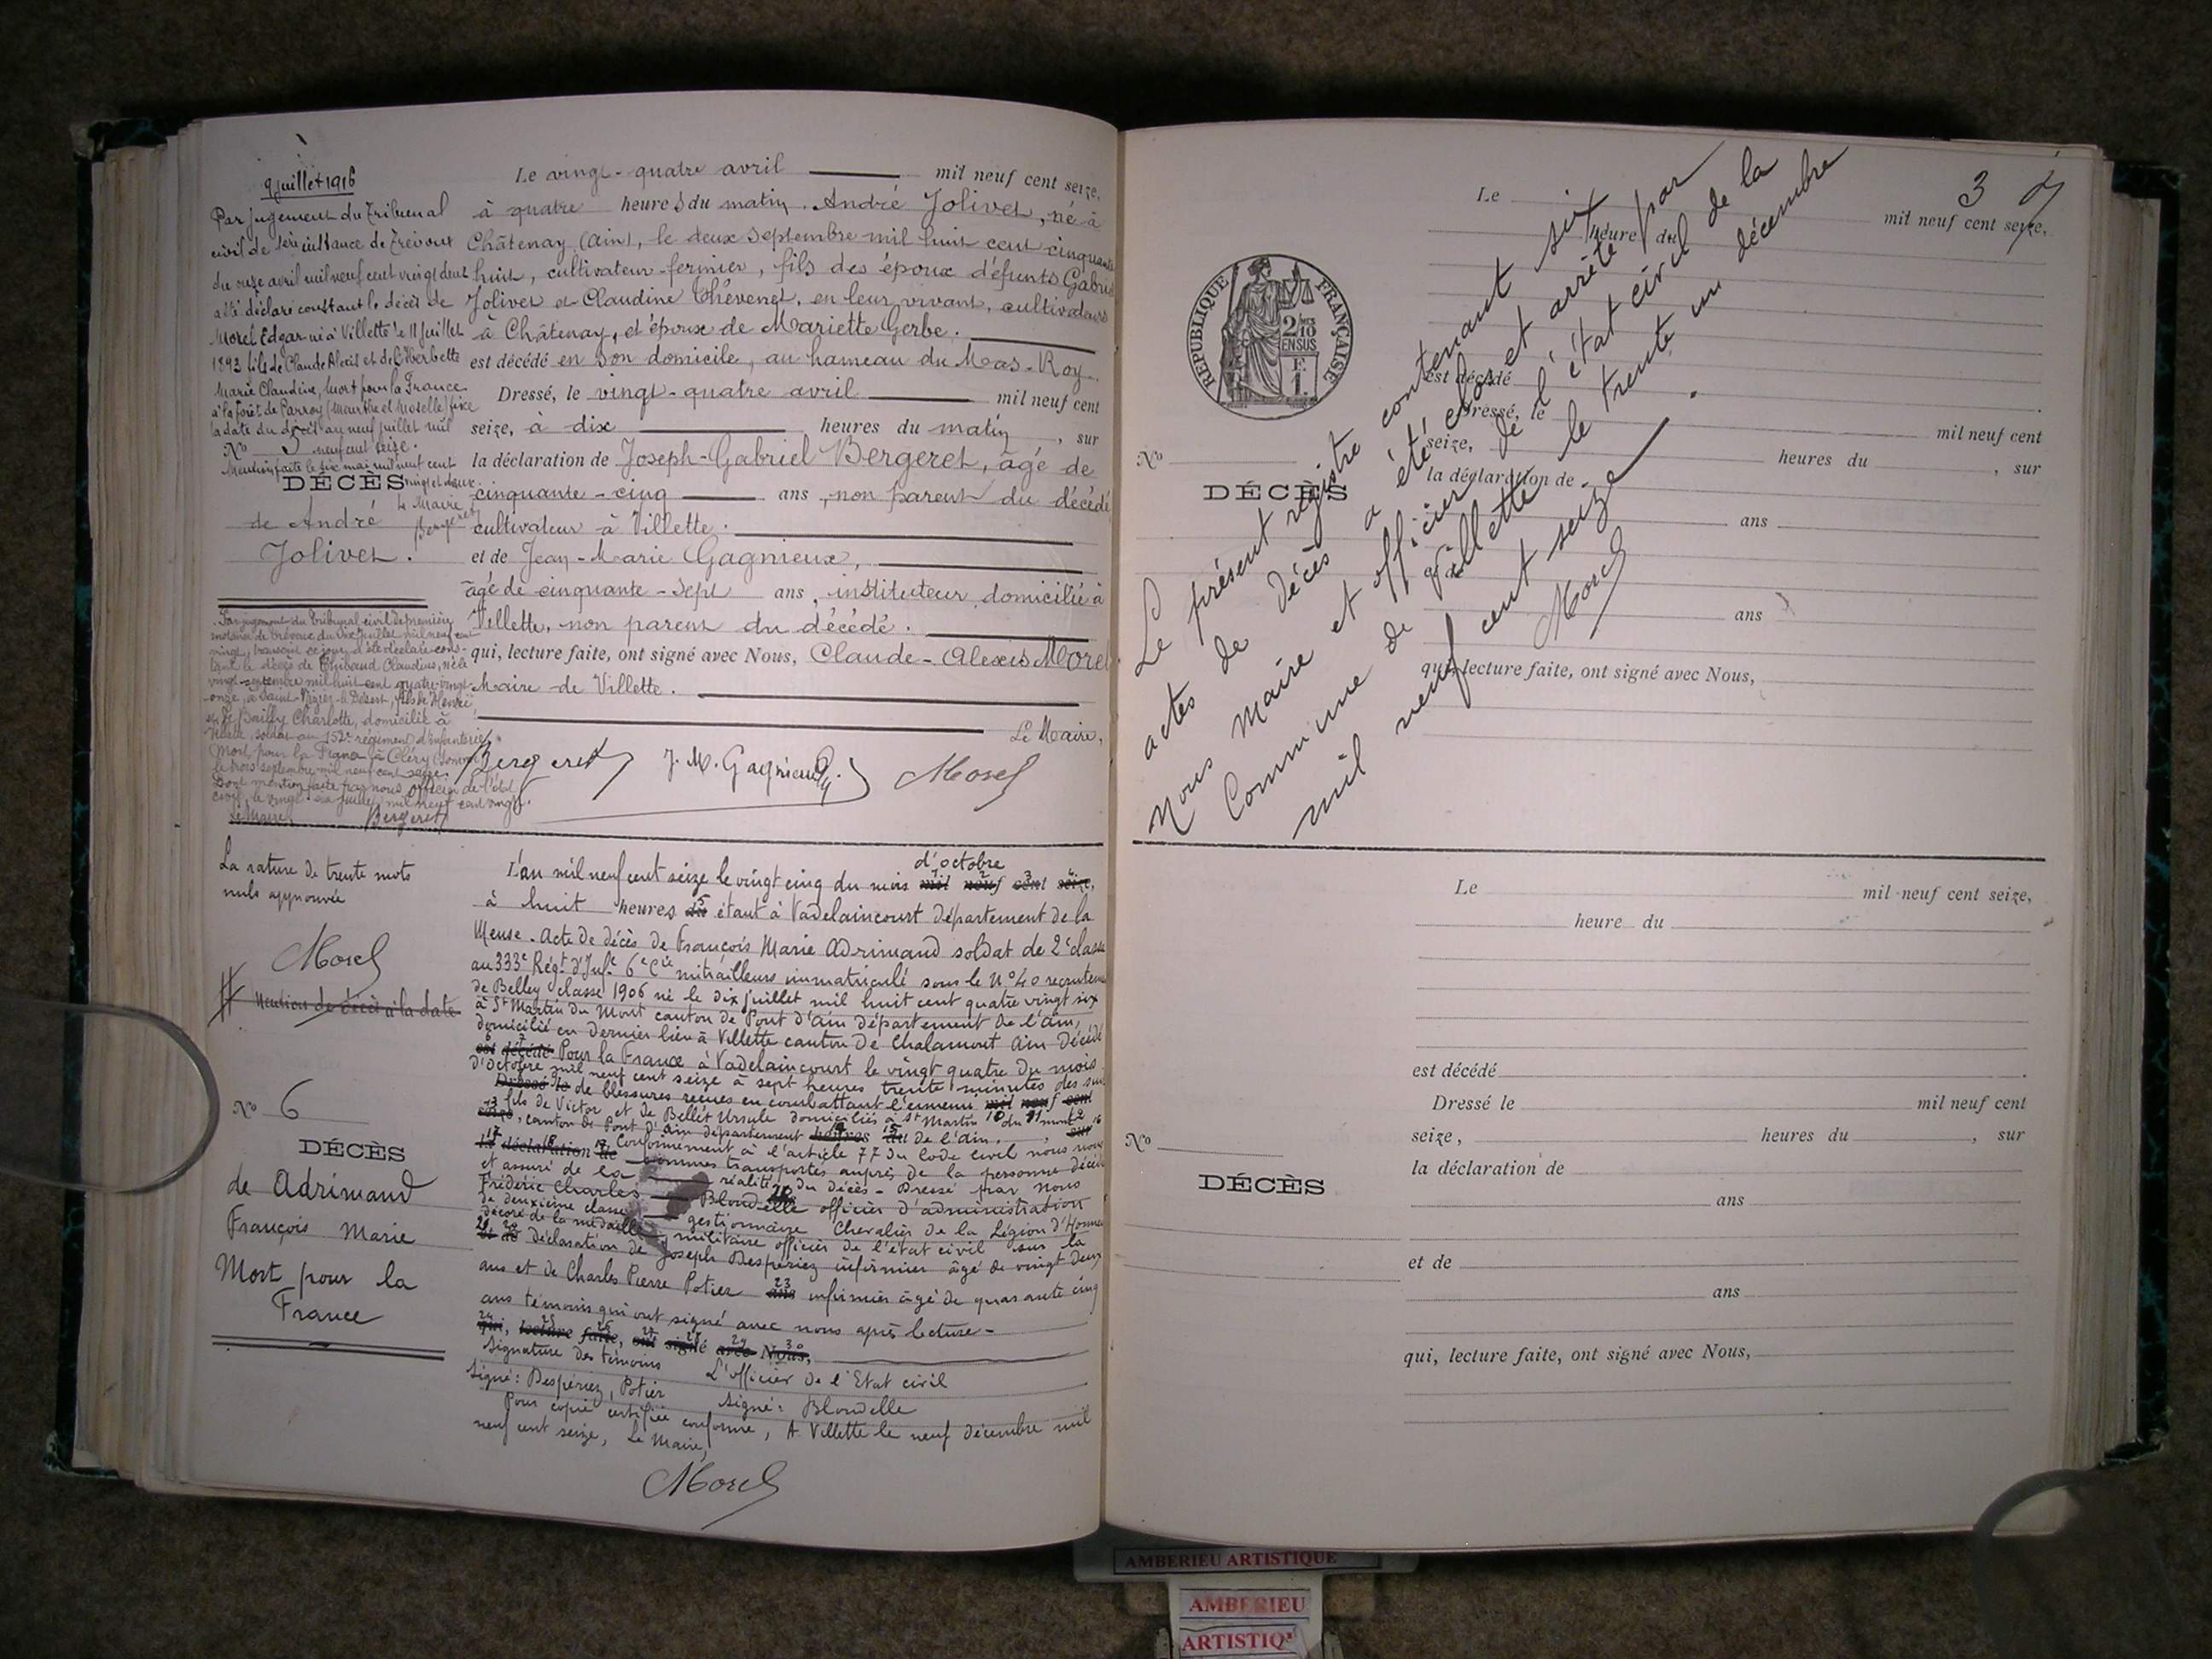 9 juillet 1916
Par jugement du Tribunal
civil de 1ère instance de Trévoux
du onze avril mil neuf cent vingt deux
a été déclaré constant le décès de
Morel Edgar né à Villette le 11 juillet
1893 fils de Claude Alexis et de Herbette
Marie Claudine, Mort pour la France
à la forêt de Parroy (Meurthe et Moselle) fixe
la date du décès au neuf juillet mil
neuf cent seize.
Mention faite le six mai mil neuf cent
vingt et deux.
Le Maire
Bergeret
No 5
DÉCÈS
de André
Jolivet.
Le vingt-quatre avril mil neuf cent seize,
à quatre heures du matin. André Jolivet, né à
Châtenay (Ain), le deux septembre mil huit cent cinquante
huit, cultivateur-fermier, fils des époux défunts Gabriel
Jolivet et Claudine Thévenet, en leur vivant, cultivateurs
à Châtenay, et époux de Mariette Gerbe.
est décédé en son domicile, au hameau du Mas-Roy.
Dressé, le vingt-quatre avril mil neuf cent
seize, à dix heures du matin, sur
la déclaration de Joseph-Gabriel Bergeret, âgé de
cinquante-cinq ans, non parent du décédé
cultivateur à Villette.
et de Jean-Marie Gagnieux,
âgé de cinquante-sept ans, instituteur domicilié à
Villette, non parent du décédé.
qui, lecture faite, ont signé avec Nous, Claude-Alexis Morel
Maire de Villette.
Le Maire,
Bergeret J. M. Gagnieux Morel
Par jugement du tribunal civil de première
instance de Trévoux du dix juillet mil neuf cent
vingt, transcrit ce jour, a été déclaré cons-
tant le décès de Thibaud Claudius, né le
vingt septembre mil huit cent quatre-vingt-
onze, à Saint-Nizier-le-Désert, fils de Henri
et de Bailly Charlotte, domicilié à
Villette, soldat au 152e régiment d'infanterie
Mort pour la France à Cléry (Somme)
le trois septembre mil neuf cent seize.
Dont mention faite par nous officier de l'état
civil, le vingt six juillet mil neuf cent vingt.
Le Maire Bergeret
La rature de trente mots
nuls approuvée
Morel
Mention de décès à la date
No 6
DÉCÈS
de Adrimand
François Marie
Mort pour la
France
L'an mil neuf cent seize le vingt cinq du mois d'octobre mil neuf cent seize,
à huit heures du étant à Vadelaincourt département de la
Meuse. Acte de décès de François Marie Adrimand soldat de 2e classe
au 333e Régt d'Infie 6e Cie mitrailleurs immatriculé sous le No 40 recrutement
de Belley classe 1906 né le dix juillet mil huit cent quatre vingt six
à St Martin du Mont canton de Pont d'Ain département de l'Ain,
domicilié en dernier lieu à Villette canton de Chalamont Ain Décédé
est décédé Pour la France à Vadelaincourt le vingt quatre du mois
d'octobre mil neuf cent seize à sept heures trente minutes des suites
Dressé le de blessures reçues en combattant l'ennemi mil neuf cent
fils de Victor et de Bellet Ursule domiciliés à St Martin du Mont
seize, canton de Pont d'Ain département heures du de l'Ain. sur
la déclaration de Conformément à l'article 77 du Code civil nous nous
sommes transportés auprès de la personne décédée
et assuré de la réalité du décès - Dressé par nous
Frédéric Charles Blondelle officier d'administration
de deuxième classe gestionnaire Chevalier de la Légion d'Honneur
décoré de la médaille militaire officier de l'état civil sur la
et de déclaration de Joseph Despériez infirmier âgé de vingt deux
ans et de Charles Pierre Potier ans infirmier âgé de quarante cinq
ans témoins qui ont signé avec nous après lecture -
qui, lecture faite, ont signé avec Nous,
Signature des témoins L'officier de l'Etat civil
Signé: Despériez, Potier Signé: Blondelle
Pour copie certifiée conforme, A Villette le neuf décembre mil
neuf cent seize, Le Maire,
Morel
3
Le présent registre contenant six
actes de décès a été clos et arrêté par
Nous Maire et officier de l'état civil de la
Commune de Villette le trente un décembre
mil neuf cent seize.
Morel
Le mil neuf cent seize,
heure du
RÉPUBLIQUE FRANÇAISE
2/10 MES
EN SUS
F.
1.
est décédé
Dressé, le mil neuf cent
seize, heures du , sur
No
DÉCÈS
la déclaration de
ans
et de
ans
qui, lecture faite, ont signé avec Nous,
Le mil neuf cent seize,
heure du
est décédé
Dressé le mil neuf cent
seize, heures du , sur
No
DÉCÈS
la déclaration de
ans
et de
ans
qui, lecture faite, ont signé avec Nous,
AMBERIEU ARTISTIQUE
AMBERIEU
ARTISTIQ